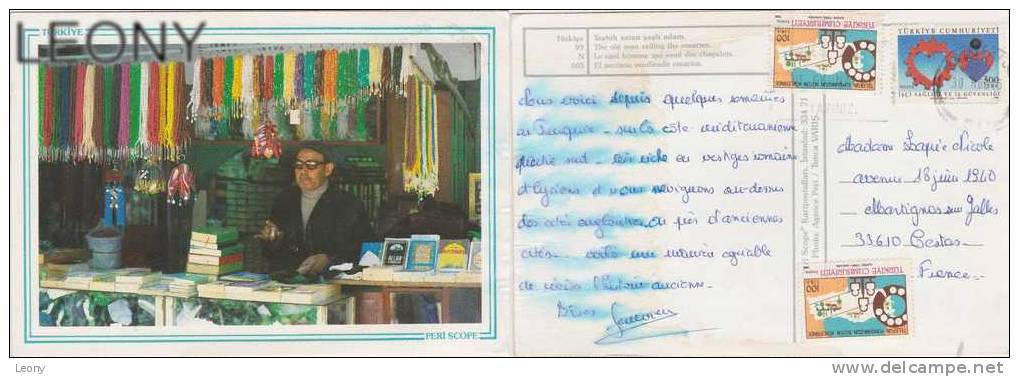 LEONY
TÜRKİYE
PERI SCOPE
Türkiye
99
N
605
Tesbih satan yaşlı adam.
The old man selling the rosaries.
Le viel homme qui vend des chapelets.
El anciano vendiendo rosarios.
TÜRKİYE CUMHURİYETİ
100
TÜRKİYE CUMHURİYETİ
300
İŞÇİ SAĞLIĞI VE İŞ GÜVENLİĞİ
TÜRKİYE CUMHURİYETİ
100
Scope" Kartpostalları, Istanbul:
Photo: Agence Peri / Tunca VARIŞ
Nous voici depuis quelques semaines
en Turquie - sur la côte méditerranéenne
sud - riche en vestiges romains
et lyciens et nous navigons au-dessus
des cités englouties ou près d'anciennes
cités - une manière agréable
de l'histoire ancienne -
Bises
Madame Nicole
avenue 18 juin 1940
Martignas sur Jalles
33610 Cestas -
France -
delcampe.net